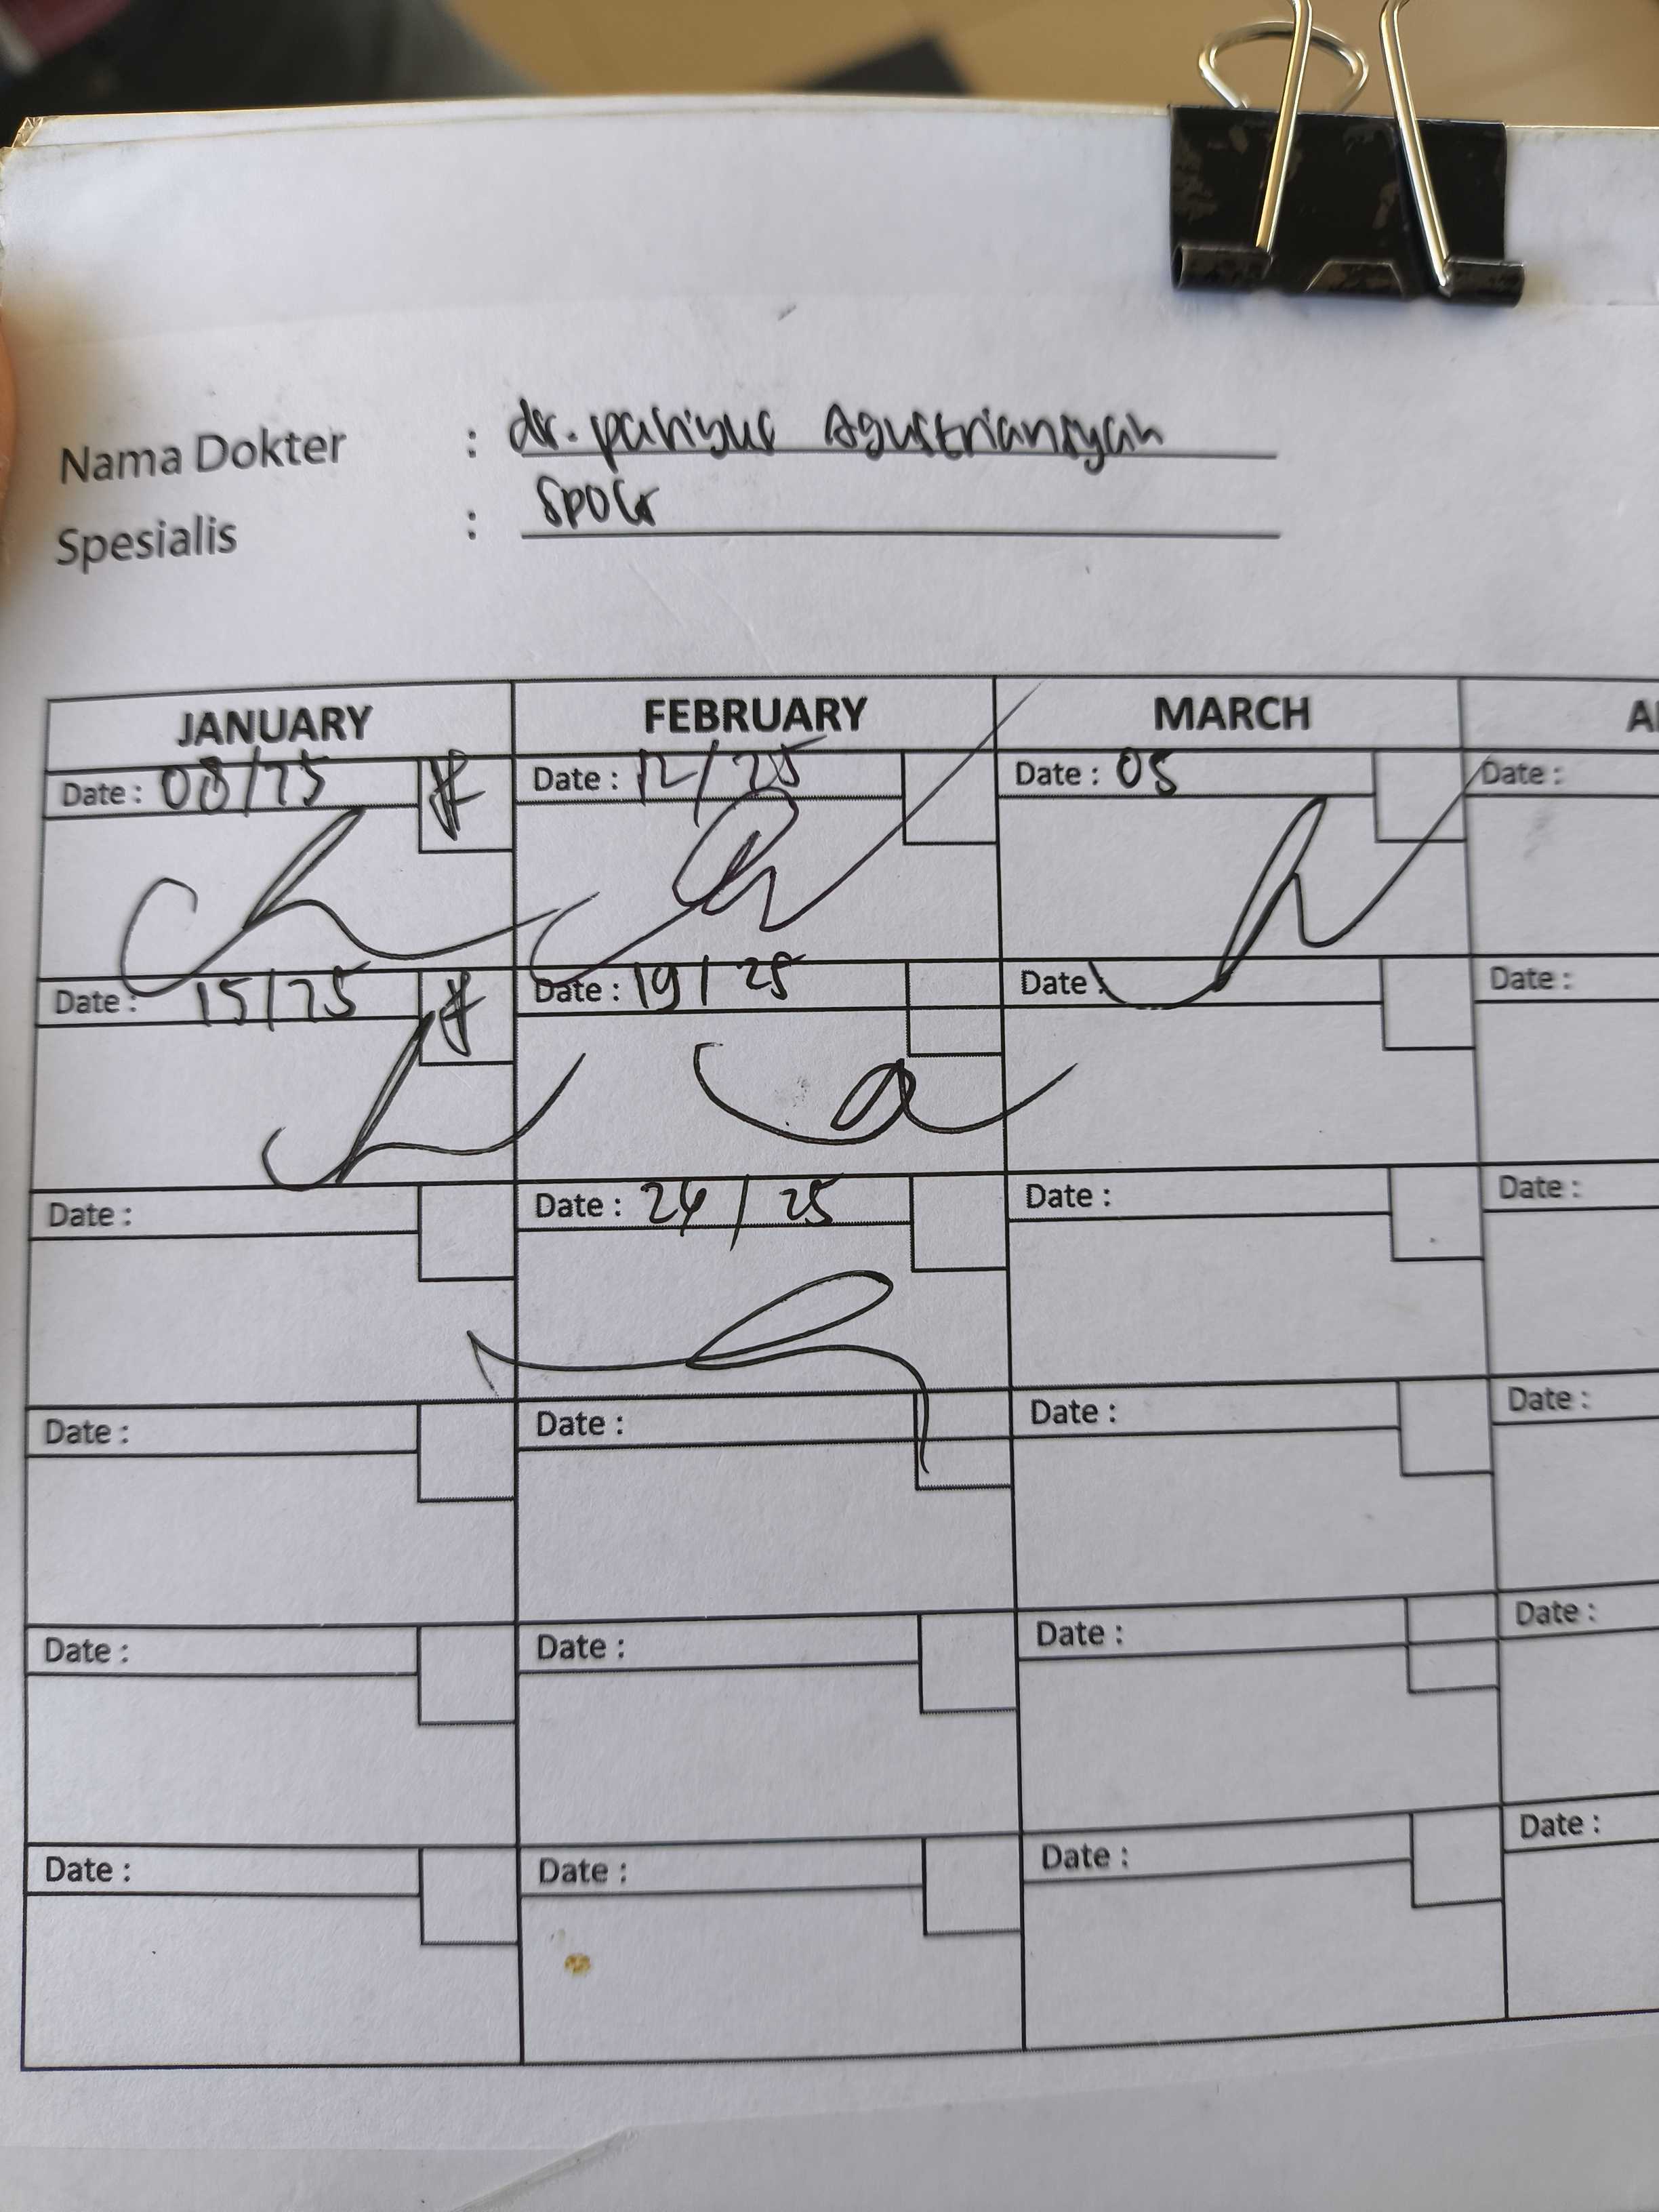 Nama Dokter : dr. pahisus Agustriansyah
Spesialis : SpOG
JANUARY FEBRUARY MARCH
Date : 08/25 Date : 12/25 Date : 05 Date :
Date : 15/25 Date : 19/25 Date Date :
Date : Date : 24/25 Date : Date :
Date : Date : Date : Date :
Date : Date : Date : Date :
Date : Date : Date : Date :